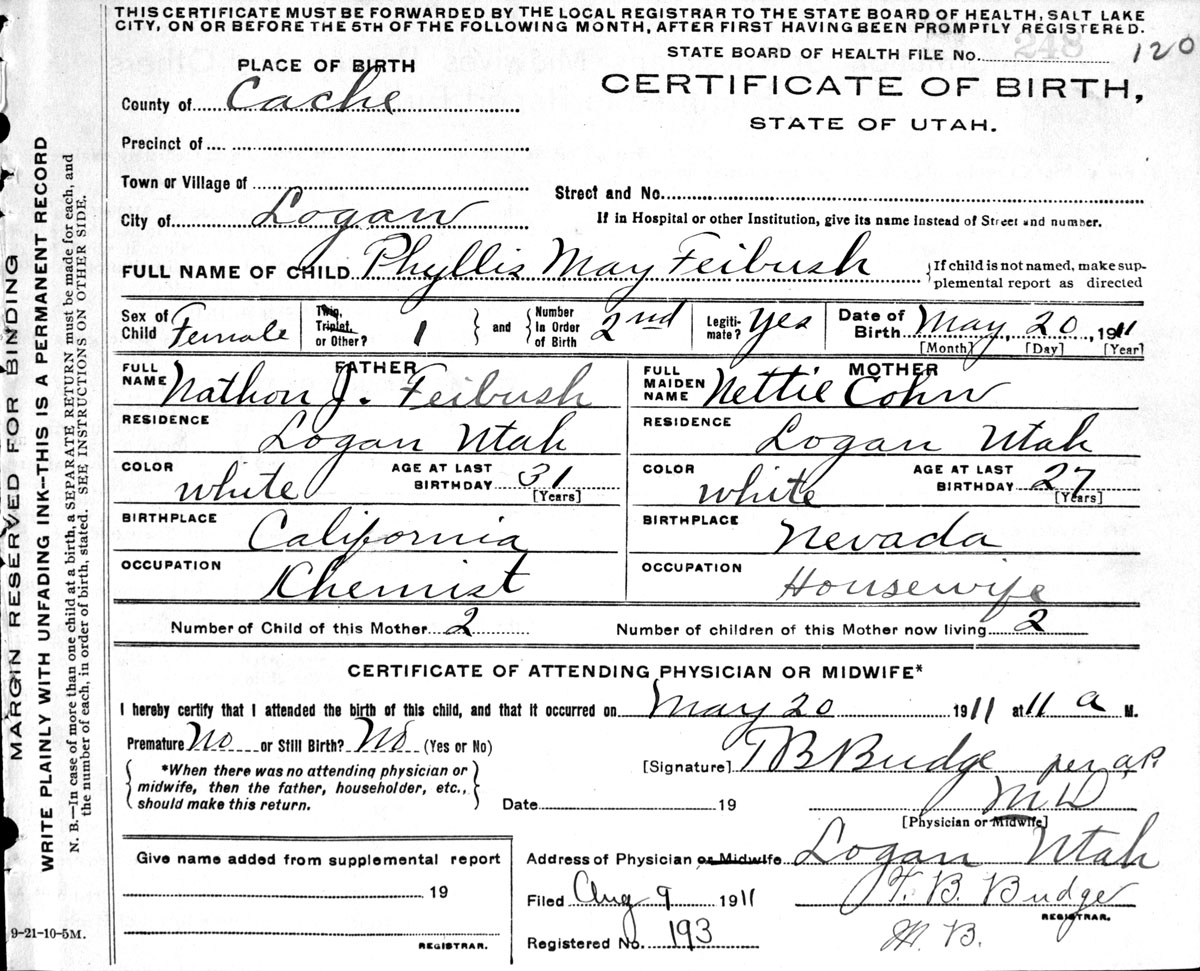 THIS CERTIFICATE MUST BE FORWARDED BY THE LOCAL REGISTRAR TO THE STATE BOARD OF HEALTH, SALT LAKE
CITY, ON OR BEFORE THE 5TH OF THE FOLLOWING MONTH, AFTER FIRST HAVING BEEN PROMPTLY REGISTERED.
STATE BOARD OF HEALTH FILE No. 248 120
PLACE OF BIRTH
CERTIFICATE OF BIRTH,
STATE OF UTAH.
County of Cache
Precinct of
Town or Village of
Street and No.
City of Logan
If in Hospital or other Institution, give its name instead of Street and number.
FULL NAME OF CHILD Phyllis May Feibush
{If child is not named, make sup-
plemental report as directed
Sex of Child Female
Twin, Triplet, or Other? 1
and
Number In Order of Birth 2nd
Legiti-mate? Yes
Date of Birth May 20, 1911
[Month] [Day] [Year]
FATHER
FULL NAME Nathon J. Feibush
RESIDENCE Logan Utah
COLOR white
AGE AT LAST BIRTHDAY 31
[Years]
BIRTHPLACE California
OCCUPATION Khemist
MOTHER
FULL MAIDEN NAME Nettie Cohn
RESIDENCE Logan Utah
COLOR white
AGE AT LAST BIRTHDAY 27
[Years]
BIRTHPLACE Nevada
OCCUPATION Housewife
Number of Child of this Mother 2
Number of children of this Mother now living 2
CERTIFICATE OF ATTENDING PHYSICIAN OR MIDWIFE*
I hereby certify that I attended the birth of this child, and that it occurred on May 20 1911 at 11 a M.
Premature No or Still Birth? No (Yes or No)
{*When there was no attending physician or
midwife, then the father, householder, etc.,
should make this return.}
[Signature] T B Budge per a.P.
Date 19
M D
[Physician or Midwife]
Address of Physician or Midwife Logan Utah
Filed Aug 9 1911
T. B. Budge
REGISTRAR.
Registered No. 193
M. B.
Give name added from supplemental report
19
REGISTRAR.
9-21-10-5M.
MARGIN RESERVED FOR BINDING
WRITE PLAINLY WITH UNFADING INK--THIS IS A PERMANENT RECORD
N. B.—In case of more than one child at a birth, a SEPARATE RETURN must be made for each, and
the number of each, in order of birth, stated. SEE INSTRUCTIONS ON OTHER SIDE.